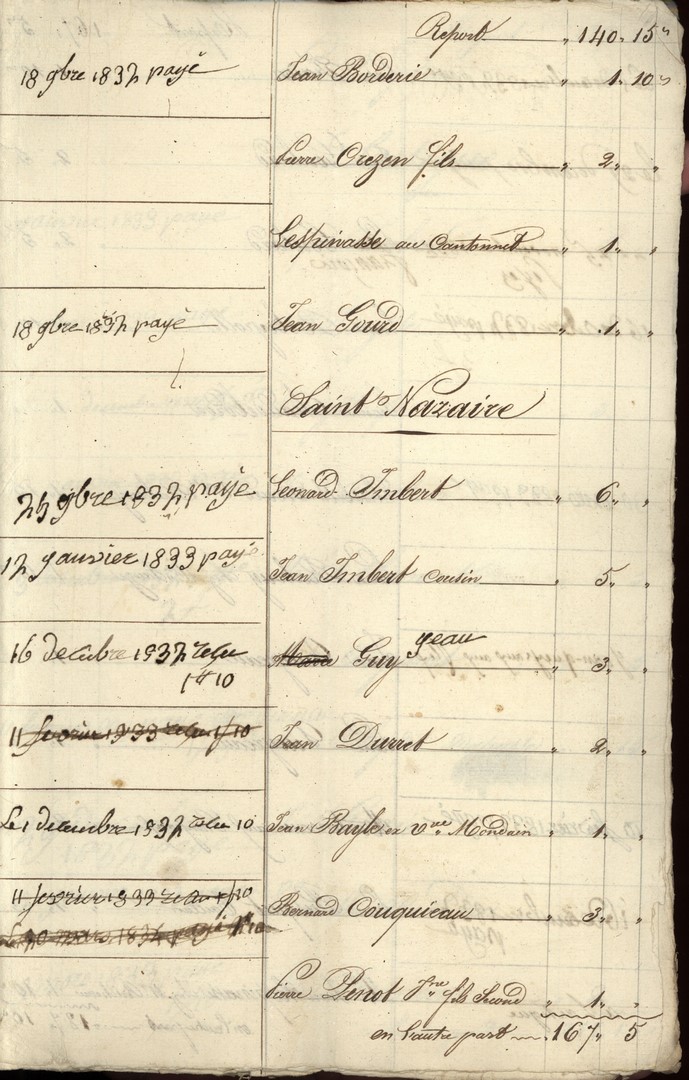 Report " 140 " 15 "
18 gbre 1832 payé Jean Borderie " 1 " 10 "
Pierre Crezen fils " 2 " "
Lespinasse au Cantonnet " 1 " "
18 gbre 1832 payé Jean Gourd " 1 " "
Saint Nazaire
25 gbre 1832 payé Leonard Imbert " 6 " "
12 janvier 1833 payé Jean Imbert cousin " 5 " "
16 decubre 1832 reçu Marie Guy geau " 3 " "
1ff 10
11 fevrier 1833 reçu 1f 10 Jean Durret " 2 " "
Le 1 decembre 1832 reçu 10 Jean Bayle ex vve Mondain " 1 " "
11 fevrier 1833 reçu 1f 10 Bernard Couquieau " 3 " "
mars payé
Pierre Penot Jne fils Second " 1 " "
en l'autre part 167 " 5